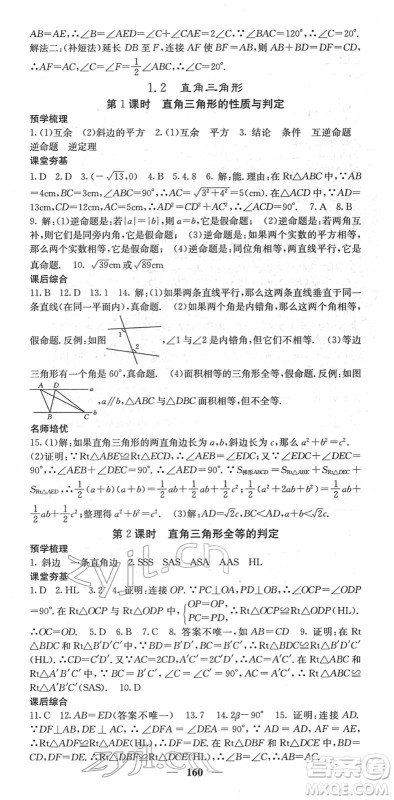 AB=AE, ∴∠B=∠AED=∠C+∠CAE=2∠C, ∴∠BAC=120°.
解法二:(补短法)延长 DB 至 F, 连接 AF, ∵AB+BD=DF=CD,
∴AF=AC, ∴∠F=∠C=1/2∠ABC=20°, ∴∠BAC=120°.
1.2 直角三角形
第1课时 直角三角形的性质与判定
预学梳理
1.(1)互余 (2)斜边的平方 2.(1)互余 (2)平方 3.结论 条件 互逆命题
逆命题 逆定理
课堂夯基
1.D 2.D 3.(-√13,0) 4.5 5.B 6.解:在Rt△ABC中,∵AB
=4cm,BC=3cm,∠ABC=90°,∴AC=√(3²+4²)=5(cm).在△ADC中,∵AD=
13cm,CD=12cm,AC=5cm,∴AD²=CD²+AC²,∴∠ACD=90°. 7.A 8.B
9.解:(1)逆命题是:若|a|=|b|,则a=b,它是假命题. (2)逆命题是:若两角互
补,则它们是同旁内角,它是假命题. (3)逆命题是:如果两个实数的平方相等,
那么这两个实数相等,它是假命题. (4)逆命题是:同位角相等,两直线平行,它是
真命题. 10.√39cm或√89cm
课后综合
11.B 12.D 13.1 14.解:(1)如果两条直线平行,那么这两条直线垂直于同
一条直线,假命题. (2)如果两个角相等,那么这两个角
是内错角,假命题.反例:如图 ,∠1与∠2是内错角,但不相等. (3)等边
三角形有一个角是60°,真命题. (4)面积相等的三角形全等,假命题.反例:如图
,a∥b,△ABC与△DBC面积相等,但不全等.
名师培优
15.(1)解:如果直角三角形的两直角边长为a,b,斜边长为c,那么a²+b²=c².
(2)证明:∵Rt△ABE≌Rt△ECD,∴∠AEB=∠EDC.又∵∠EDC+∠DEC=
90°,∴∠AEB+∠DEC=90°,∴∠AED=90°.∵S梯形ABCD=SRt△ABE+SRt△DEC+
SRt△AED,∴1/2(a+b)(a+b)=1/2ab+1/2ab+1/2c²,∴1/2(a²+2ab+b²)=1/2ab+
1/2ab+1/2c²,整理得a²+b²=c². (3)解:AD=√2,BC>AC,∠B<45°.
第2课时 直角三角形全等的判定
预学梳理
1.斜边 一条直角边 2.SSS SAS ASA AAS HL
课堂夯基
1.D 2.HL 3.2 4.证明:连接OP.∵PC⊥OA,PD⊥OB,∴∠OCP=
∠ODP=90°.在Rt△OCP与Rt△ODP中,{OP=OP, PC=PD,∴Rt△OCP≌Rt△ODP(HL).
∴OC=OD. 5.B 6.B 7.C 8.答案不唯一,如AB=CD 9.证明:在
Rt△BDC与Rt△B′D′C′中,∵BD=B′D′,BC=B′C′,∴Rt△BDC≌Rt△B′D′C′
(HL).∴CD=C′D′.又∵AD=A′D′,∴AC=A′C′.在Rt△ABC与
Rt△A′B′C′中,∵BC=B′C′,∠C=∠C′=90°,AC=A′C′,∴Rt△ABC≌
Rt△A′B′C′(SAS). 10.D
课后综合
11.C 12.AB=ED(答案不唯一) 13.7 14.2β-90° 15.证明:连接AD.∵
DF⊥AB,DE⊥AC,∴∠DFA=∠DEA=90°.∵在Rt△ADF与Rt△ADE中,AE=AF,AD=AD,
∴Rt△ADF≌Rt△ADE(HL),∴DF=DE.∵在Rt△DBF与Rt△DCE中,
160